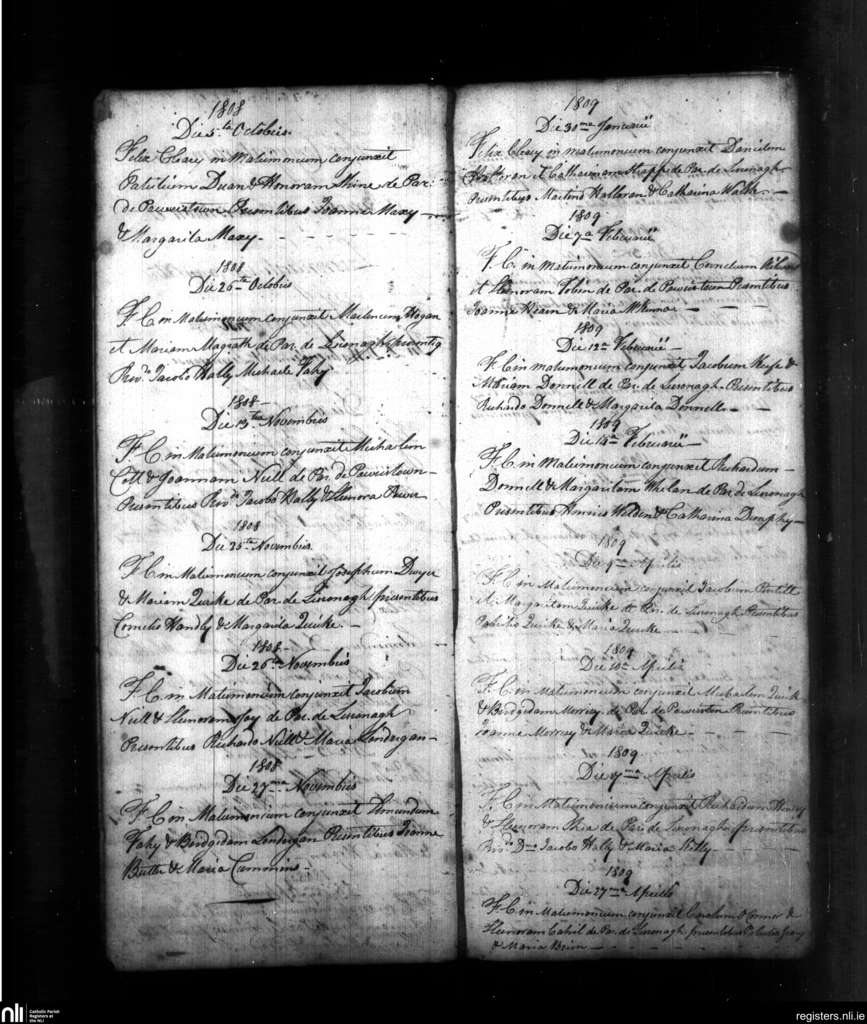 1808
Die 5.ta Octobris.
Felix Cleary in Matrimonium conjunxit
Patritium Duan & Honoram Shine de Par:
de Powerstown Presentibus Joanne Maxy
& Margarita Maxy
1808
Die 26ta Octobris
F C in Matrimonium conjunxit Hogan
et Mariam Magrath de Par. de Lisronagh presentibq
Revdo Jacobo Hally Michaele Fahy
1808
Die 13tia Novembris
F C in Matrimonium conjunxit Michaelem
Cott & Joannam Neill de Par. de Powerstown
Presentibus Revdo Jacobo Hally & Elenora Power
1808
Die 25ta Novembris.
F C in Matrimonium conjunxit Josephum Dwyer
& Mariam Quirke de Par de Lisronagh presentibus
Cornelio Handly & Margarita Quirke
1808
Die 26ta Novembris
F. C. in Matrimonium conjunxit Jacobum
Neill & Elenoram Joy de Par. de Lisronagh
Presentibus Richardo Neill & Maria Londergan
1808
Die 27ma Novembris
F C in Matrimonium conjunxit Edmundum
Fahy & Bridgidam Londergan Presentibus Joanne
Butler & Maria Cummins
1809
Die 30ma Januarii
Felix Cleary in Matrimonium conjunxit Danielem
Halloran et Catharinam de Par. de Lisronagh
Presentibus Martino Halloran & Catharina Walsh
1809
Die 7a Februarii
F. C. in Matrimonium conjunxit Cornelium
et Elenoram Tobin de Par. de Powerstown Presentibus
Joanne & Maria
1809
Die 12a Februarii
F C in Matrimonium conjunxit Jacobum Keefe &
Mariam Donnell de Par. de Lisronagh Presentibus
Richardo Donnell & Margarita Donnell
1809
Die 14a Februarii
F. C. in Matrimonium conjunxit Richardum
Donnell & Margaritam Whelan de Par de Lisronagh
Presentibus & Catharina Dunphy
1809
Die 9a Aprilis
F C in Matrimonium conjunxit Jacobum
et Margaritam Quirke de Par. de Lisronagh Presentibus
Patritio Quirke & Maria Quirke
1809
Die 10a Aprilis
F. C. in Matrimonium conjunxit Michaelem Quirk
& Bridgidam Morrisy de Par de Powerstown Presentibus
Joanne Morrisy & Maria Quirke
1809
Die Aprilis
F. C in Matrimonium conjunxit Richardum
& Elenoram Shea de Par. de Lisronagh presentibus
Revdo Dno Jacobo Hally & Maria
1809
Die 27ma Aprilis
F. C in Matrimonium conjunxit O Connor &
Elenoram Cahil de Par. de Lisronagh presentibus Patritio
& Maria Brien
nli
Catholic Parish
Registers at
the NLI
registers.nli.ie